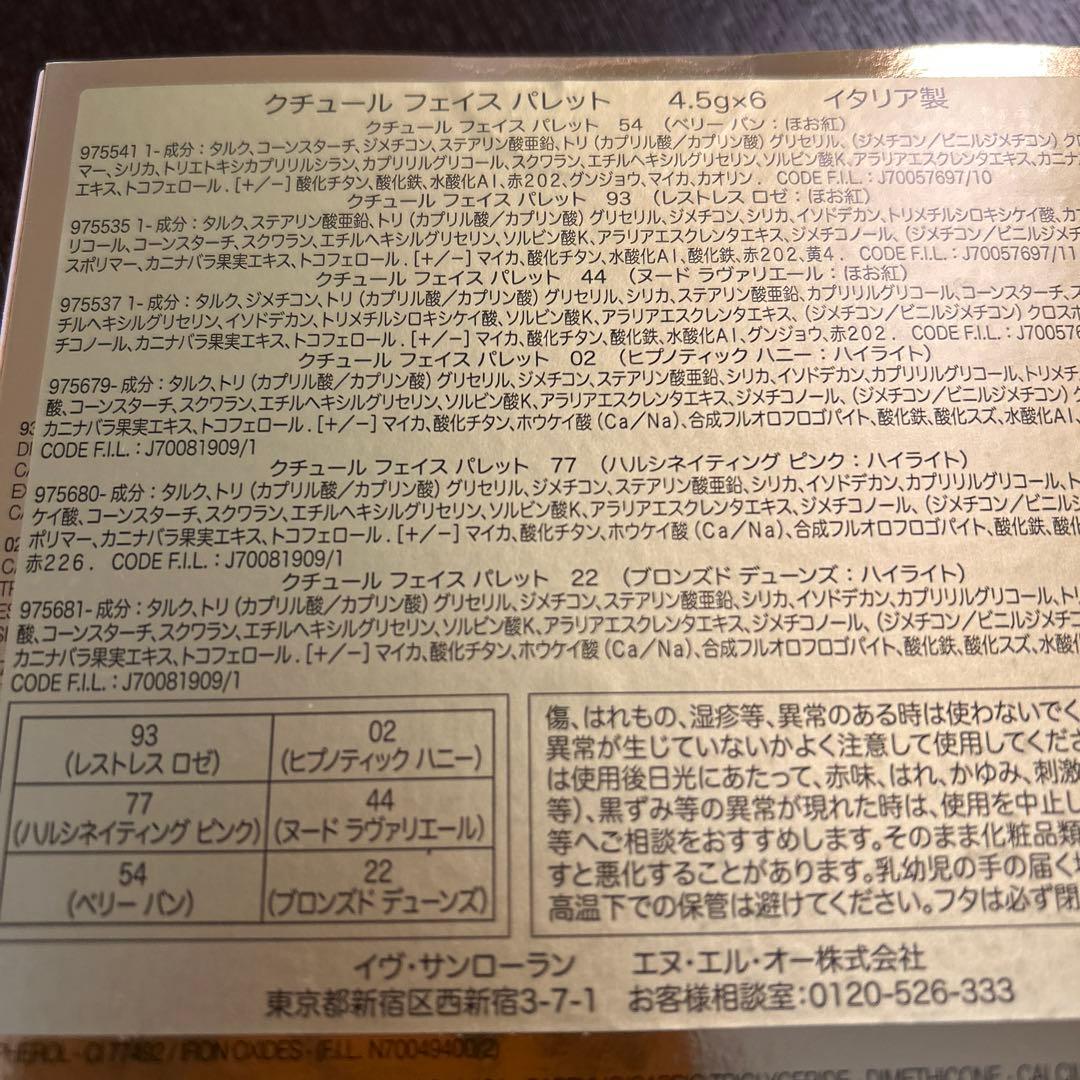 クチュール フェイス パレット 4.5g×6 イタリア製
クチュール フェイス パレット 54 (ベリー バン：ほお紅)
975541 1- 成分：タルク、コーンスターチ、ジメチコン、ステアリン酸亜鉛、トリ（カプリル酸／カプリン酸）グリセリル、（ジメチコン／ビニルジメチコン）クロ
マー、シリカ、トリエトキシカプリリルシラン、カプリリルグリコール、スクワラン、エチルヘキシルグリセリン、ソルビン酸K、アラリアエスクレンタエキス、カニナ
エキス、トコフェロール．[＋／－] 酸化チタン、酸化鉄、水酸化Al、赤202、グンジョウ、マイカ、カオリン． CODE F.I.L.：J70057697/10
クチュール フェイス パレット 93 (レストレス ロゼ：ほお紅)
975535 1- 成分：タルク、ステアリン酸亜鉛、トリ（カプリル酸／カプリン酸）グリセリル、ジメチコン、シリカ、イソドデカン、トリメチルシロキシケイ酸、カプ
リコール、コーンスターチ、スクワラン、エチルヘキシルグリセリン、ソルビン酸K、アラリアエスクレンタエキス、ジメチコノール、（ジメチコン／ビニルジメチコ
スポリマー、カニナバラ果実エキス、トコフェロール．[＋／－] マイカ、酸化チタン、水酸化Al、酸化鉄、赤202、黄4． CODE F.I.L.：J70057697/11
クチュール フェイス パレット 44 (ヌード ラヴァリエール：ほお紅)
975537 1- 成分：タルク、ジメチコン、トリ（カプリル酸／カプリン酸）グリセリル、シリカ、ステアリン酸亜鉛、カプリリルグリコール、コーンスターチ、ス
チルヘキシルグリセリン、イソドデカン、トリメチルシロキシケイ酸、ソルビン酸K、アラリアエスクレンタエキス、（ジメチコン／ビニルジメチコン）クロスポ
チコノール、カニナバラ果実エキス、トコフェロール．[＋／－] マイカ、酸化チタン、酸化鉄、水酸化Al、グンジョウ、赤202． CODE F.I.L.：J700576
クチュール フェイス パレット 02 (ヒプノティック ハニー：ハイライト)
975679- 成分：タルク、トリ（カプリル酸／カプリン酸）グリセリル、ジメチコン、ステアリン酸亜鉛、シリカ、イソドデカン、カプリリルグリコール、トリメチ
酸、コーンスターチ、スクワラン、エチルヘキシルグリセリン、ソルビン酸K、アラリアエスクレンタエキス、ジメチコノール、（ジメチコン／ビニルジメチコン）ク
カニナバラ果実エキス、トコフェロール．[＋／－] マイカ、酸化チタン、ホウケイ酸（Ca／Na）、合成フルオロフロゴパイト、酸化鉄、酸化スズ、水酸化Al、
CODE F.I.L.：J70081909/1
クチュール フェイス パレット 77 (ハルシネイティング ピンク：ハイライト)
975680- 成分：タルク、トリ（カプリル酸／カプリン酸）グリセリル、ジメチコン、ステアリン酸亜鉛、シリカ、イソドデカン、カプリリルグリコール、ト
ケイ酸、コーンスターチ、スクワラン、エチルヘキシルグリセリン、ソルビン酸K、アラリアエスクレンタエキス、ジメチコノール、（ジメチコン／ビニルジ
ポリマー、カニナバラ果実エキス、トコフェロール．[＋／－] マイカ、酸化チタン、ホウケイ酸（Ca／Na）、合成フルオロフロゴパイト、酸化鉄、酸化
赤226． CODE F.I.L.：J70081909/1
クチュール フェイス パレット 22 (ブロンズド デューンズ：ハイライト)
975681- 成分：タルク、トリ（カプリル酸／カプリン酸）グリセリル、ジメチコン、ステアリン酸亜鉛、シリカ、イソドデカン、カプリリルグリコール、トリ
酸、コーンスターチ、スクワラン、エチルヘキシルグリセリン、ソルビン酸K、アラリアエスクレンタエキス、ジメチコノール、（ジメチコン／ビニルジメチコ
カニナバラ果実エキス、トコフェロール．[＋／－] マイカ、酸化チタン、ホウケイ酸（Ca／Na）、合成フルオロフロゴパイト、酸化鉄、酸化スズ、水酸
CODE F.I.L.：J70081909/1
93 02
(レストレス ロゼ) (ヒプノティック ハニー)
77 44
(ハルシネイティング ピンク) (ヌード ラヴァリエール)
54 22
(ベリー バン) (ブロンズド デューンズ)
傷、はれもの、湿疹等、異常のある時は使わないでく
異常が生じていないかよく注意して使用してくださ
は使用後日光にあたって、赤味、はれ、かゆみ、刺激
等）、黒ずみ等の異常が現れた時は、使用を中止し
等へご相談をおすすめします。そのまま化粧品類
すと悪化することがあります。乳幼児の手の届く
高温下での保管は避けてください。フタは必ず閉
イヴ・サンローラン エヌ・エル・オー株式会社
東京都新宿区西新宿3-7-1 お客様相談室：0120-526-333
PHEROL - CI 77492 / IRON OXIDES - (F.I.L. N70049400/2)
TRIGLYCERIDE - DIMETHICONE - CALCIU